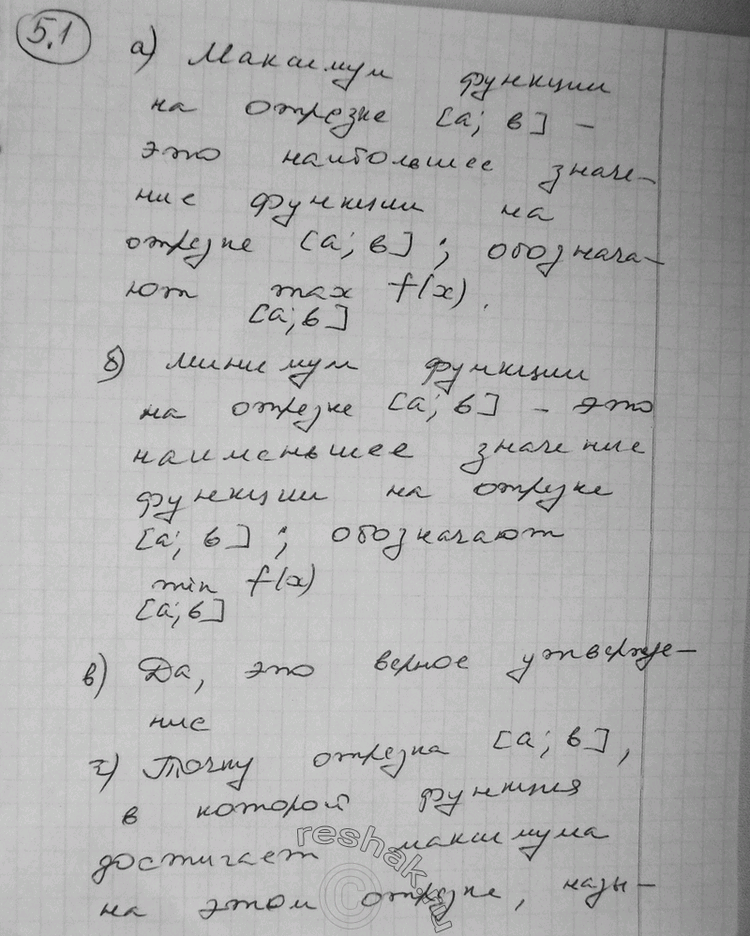 5.1
а) Максимум функции
на отрезке [a; в] -
это наибольшее значе-
ние функции на
отрезке [a; в]; обознача-
ют max f(x).
[a; в]
б) минимум функции
на отрезке [a; в] - это
наименьшее значение
функции на отрезке
[a; в]; обозначают
min f(x)
[a; в]
в) Да, это верное утвержде-
ние
г) Точку отрезка [a; в],
в которой функция
достигает максимума
на этом отрезке, назы-
reshak.ru
©